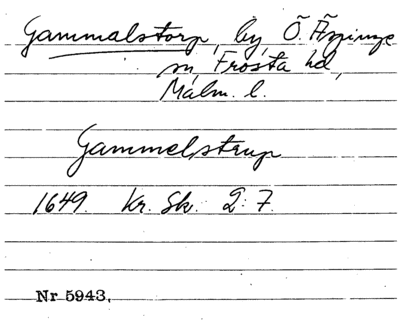 Gammalstorp, by, Ö. Äspinge
sn, Frosta hd,
Malm. l.
Gammelstrup
1649. Kr. Sk. 2: 7.
Nr 5943.